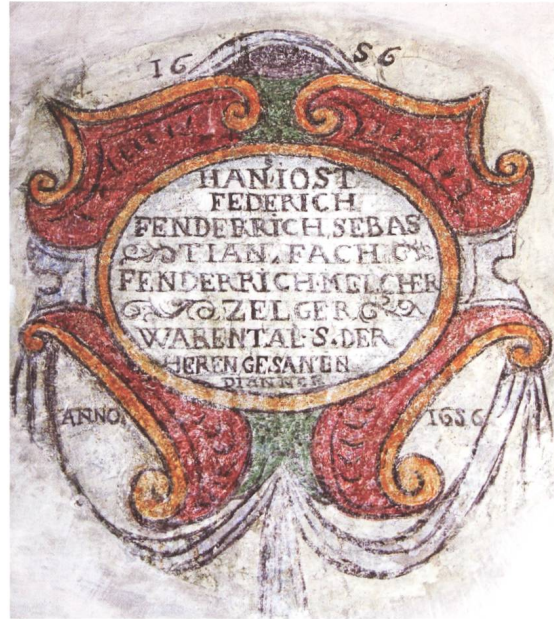 16 56
HANS IOST
FEDERICH
FENDERRICH, SEBAS
TIAN, FACH
FENDERRICH MELCHER
ZELGER
WARENTAL·S·DER
HEREN GESANEN
DIANNER
ANNO 1656